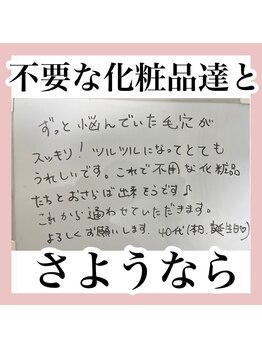 不要な化粧品達と
ずっと悩んでいた毛穴が
スッキリ！ツルツルになってとても
うれしいです。これで不用な化粧品
たちとおさらば出来そうです♪
これから通わせていただきます。
よろしくお願いします。40代(本日、誕生日♡)
さようなら